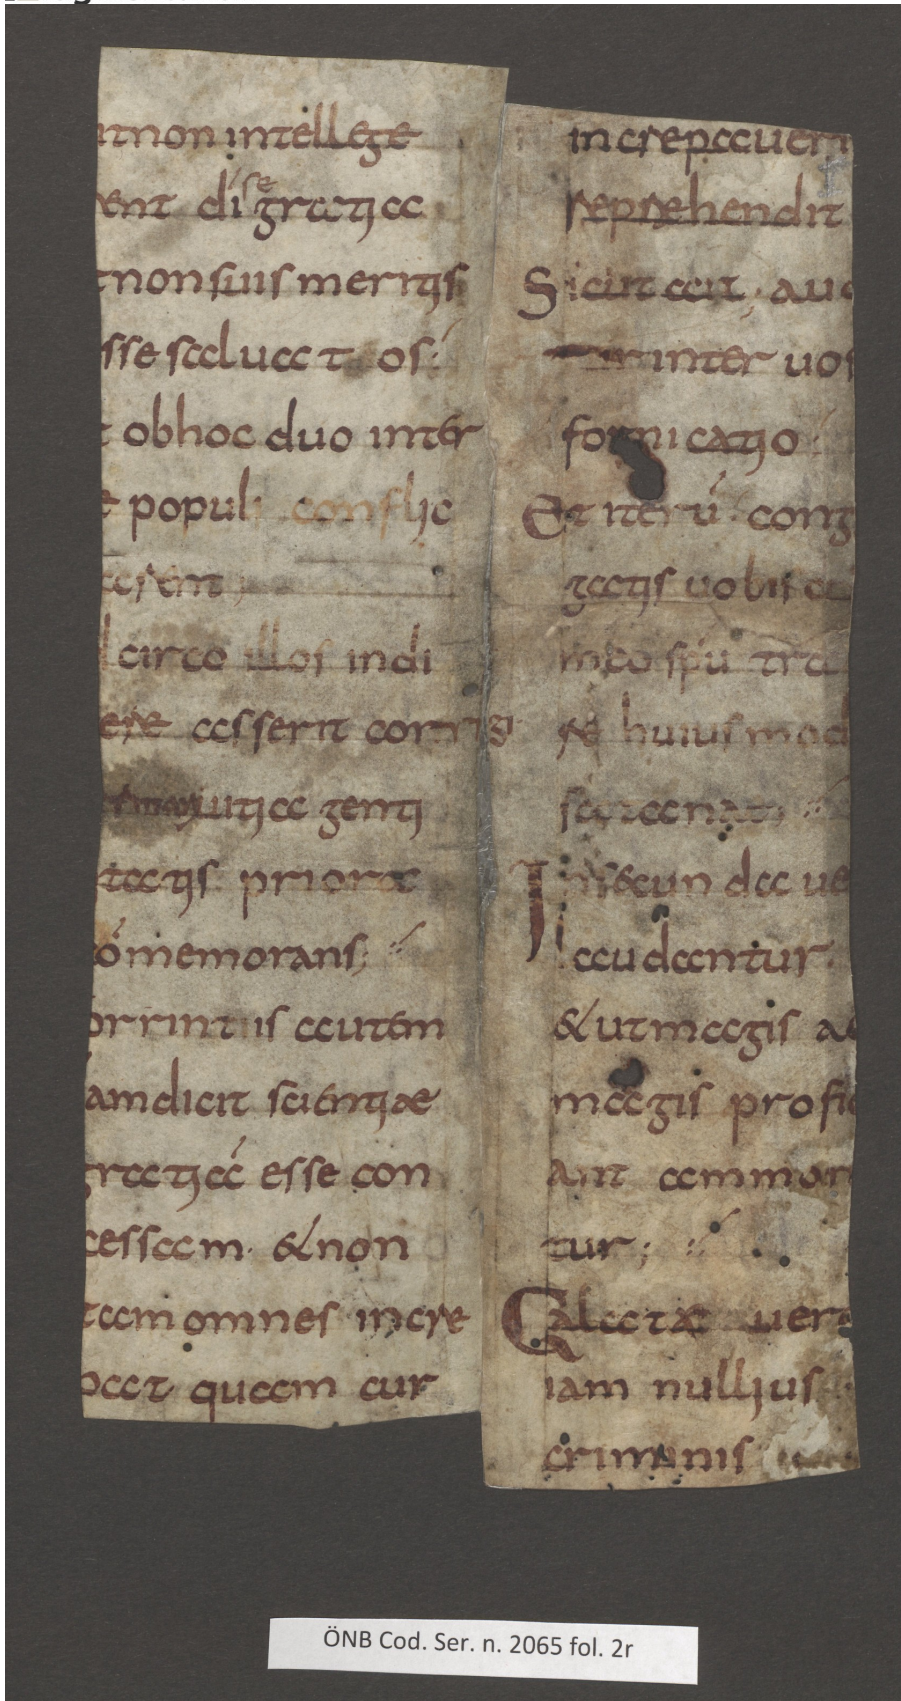 utnon intellege
rent di se gratia
tnonsuis meritis
sse saluat os:
t obhoc duo inter
e populi conflic
arent;
circo illos indi
ere asserit corrigi
utia genti
tatis priora
cómemorans;
orrint iis autem
am dicit scientiae
gratia esse con
cessam · & non
tam omnes incre
pat quam cur
increpauerit
reprehendit
Sicut ait; aud
tur inter uos
fornicatio
Et iterú cong
gatis uobis
meo spú tra
re huiusmod
satanat;
In secunda ue
laudantur
& ut magis ad
magis profici
ant ammon
tur;
Galatae uero
iam nullius
criminis
ÖNB Cod. Ser. n. 2065 fol. 2r